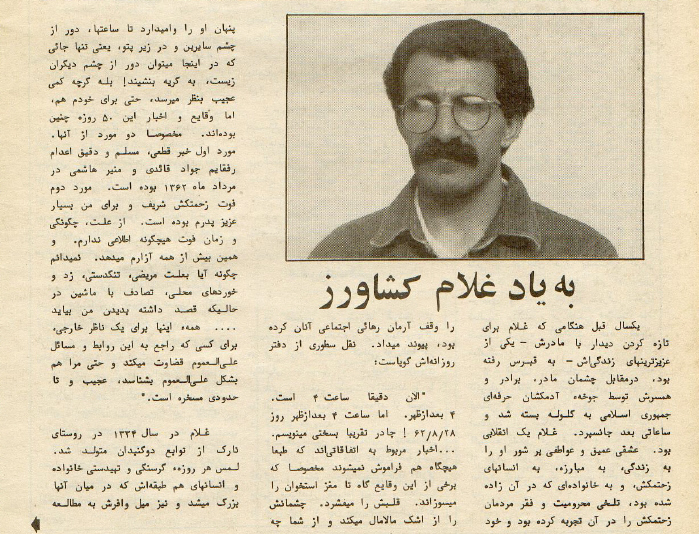 به یاد غلام کشاورز
یکسال قبل هنگامی که غلام برای
تازه کردن دیدار با مادرش - یکی از
عزیزترینهای زندگی‌اش - به قبرس رفته
بود، درمقابل چشمان مادر، برادر و
همسرش توسط جوخه‌ء آدمکشان حرفه‌ای
جمهوری اسلامی به گلوله بسته شد و
ساعاتی بعد جانسپرد. غلام یک انقلابی
بود. عشقی عمیق و عواطفی پر شور او را
به زندگی، به مبارزه، به انسانهای
زحمتکش، و به خانواده‌ای که در آن زاده
شده بود، تلخی محرومیت و فقر مردمان
زحمتکش را در آن تجربه کرده بود و خود
را وقف آرمان رهائی اجتماعی آنان کرده
بود، پیوند میداد. نقل سطوری از دفتر
روزانه‌اش گویاست:
"الان دقیقا ساعت ۴ است.
۴ بعدازظهر. اما ساعت ۴ بعدازظهر روز
۶۲/۸/۲۸ ! چادر تقریبا بسختی مینویسم.
...اخبار مربوط به اتفاقاتی‌اند که طبعا
هیچگاه هم فراموش نمیشوند مخصوصا که
برخی از این وقایع گاه تا مغز استخوان را
میسوزاند. قلبش را میفشرد. چشمانش
را از اشک مالامال میکند و از شما چه
پنهان او را وامیدارد تا ساعتها، دور از
چشم سایرین و در زیر پتو، یعنی تنها جائی
که در اینجا میتوان دور از چشم دیگران
زیست، به گریه بنشیند! بله گرچه کمی
عجیب بنظر میرسد، حتی برای خودم هم،
اما وقایع و اخبار این ۵۰ روزه چنین
بوده‌اند. مخصوصا دو مورد از آنها.
مورد اول خبر قطعی، مسلم و دقیق اعدام
رفقایم جواد قائدی و منیر هاشمی در
مرداد ماه ۱۳۶۲ بوده است. مورد دوم
فوت زحمتکش شریف و برای من بسیار
عزیز پدرم بوده است. از علت، چگونگی
و زمان فوت هیچگونه اطلاعی ندارم. و
همین بیش از همه آزارم میدهد. نمیدانم
چگونه آیا بعلت مریضی، تنگدستی، زد و
خوردهای محلی، تصادف با ماشین در
حالیکه قصد داشته بدیدن من بیاید
.... همه‌ء اینها برای یک ناظر خارجی،
برای کسی که راجع به این روابط و مسائل
علی‌العموم قضاوت میکند و حتی مرا هم
بشکل علی‌العموم بشناسد، عجیب و تا
حدودی مسخره است."
غلام در سال ۱۳۳۴ در روستای
نارک از توابع دوگنبدان متولد شد.
لمس هر روزه‌ء گرسنگی و تهیدستی خانواده
و انسانهای هم طبقه‌اش که در میان آنها
بزرگ میشد و نیز میل وافرش به مطالعه